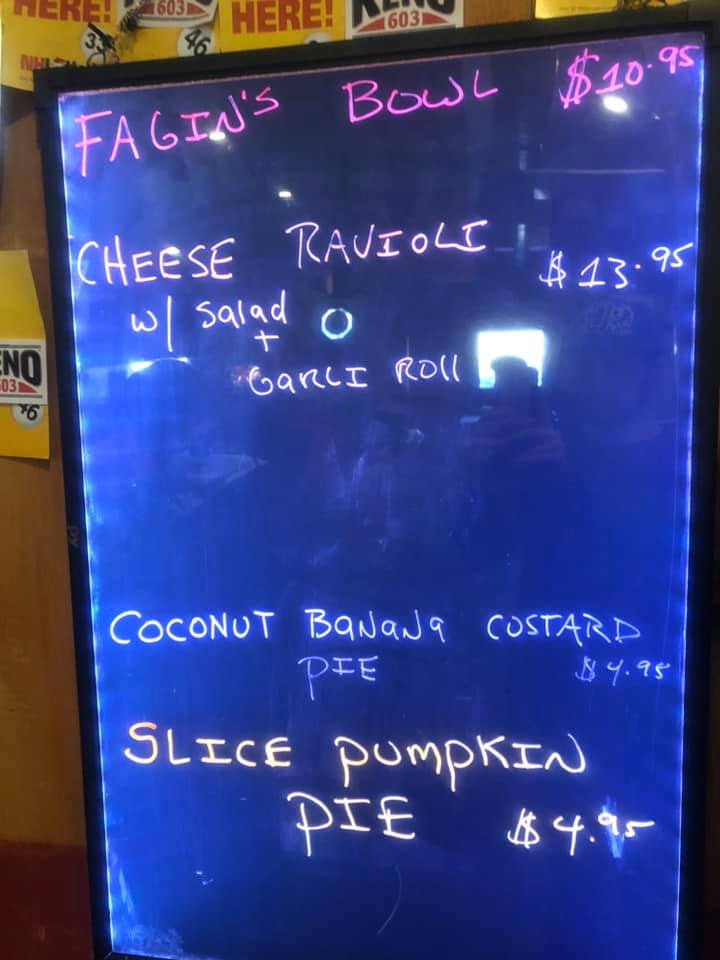 HERE!
603
HERE!
KENO
603
33
46
FAGIN'S BOWL $10.95
CHEESE RAVIOLI $13.95
w/ Salad
+
GARLI ROll
ENO
03
46
COCONUT BANANA COSTARD
PIE $4.95
SLICE PUMPKIN
PIE $4.95